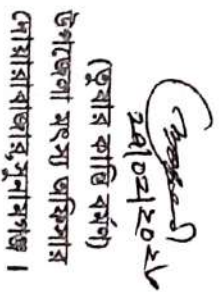 (তুষার কান্তি বর্মণ)
উপজেলা মৎস্য অফিসার
দোয়ারাবাজার, সুনামগঞ্জ।